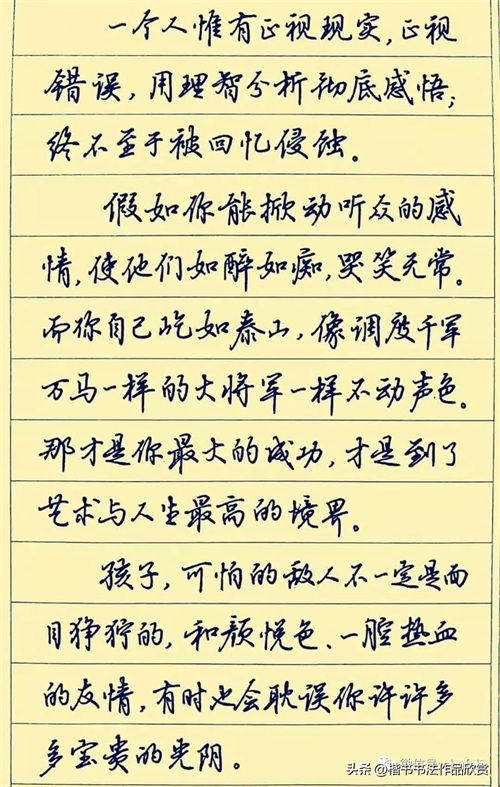 一个人惟有正视现实,正视
错误,用理智分析彻底感悟;
终不至于被回忆侵蚀。
假如你能掀动听众的感
情,使他们如醉如痴,哭笑无常。
而你自己屹如泰山,像调度千军
万马一样的大将军一样不动声色。
那才是你最大的成功,才是到了
艺术与人生最高的境界。
孩子,可怕的敌人不一定是面
目狰狞的,和颜悦色、一腔热血
的友情,有时也会耽误你许许多
多宝贵的光阴。
头条@楷书书法作品欣赏